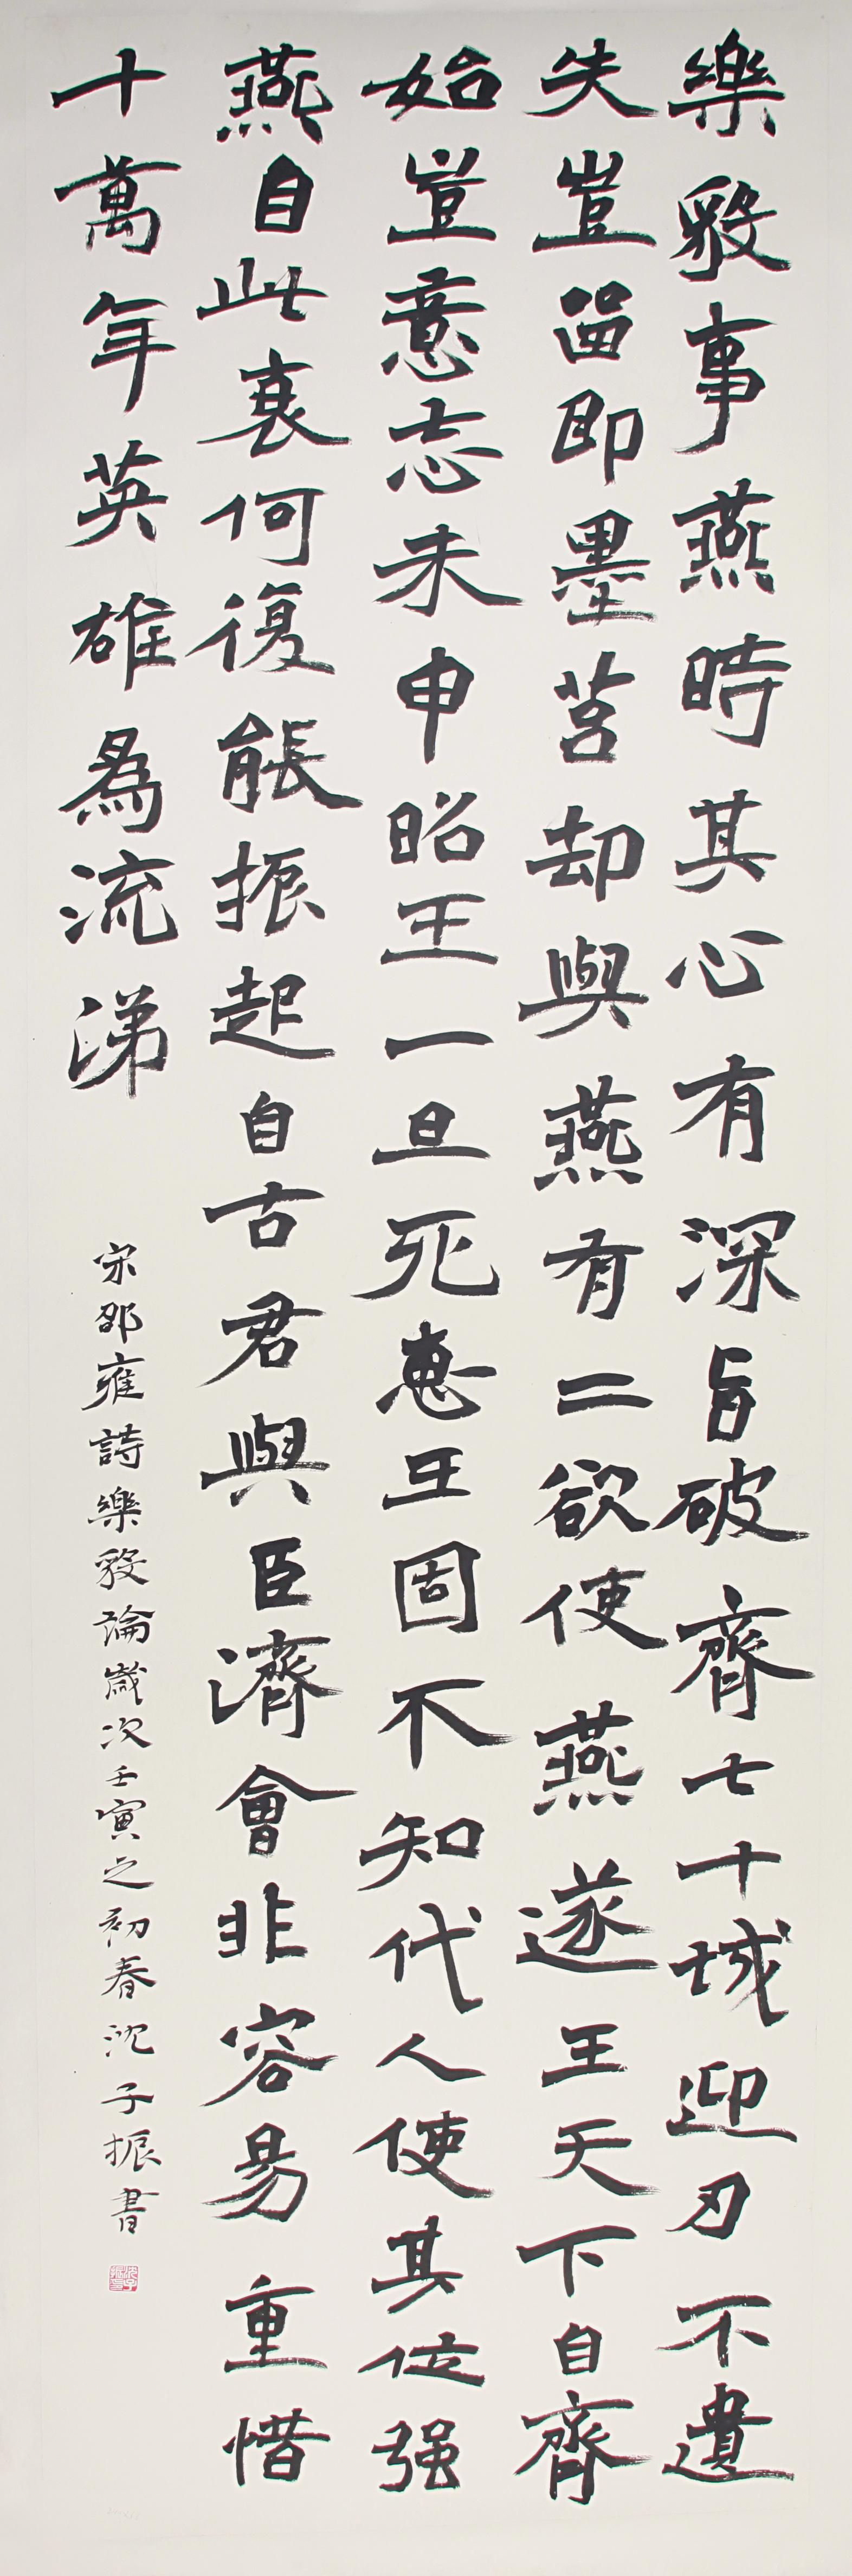 樂毅事燕時其心有深旨破齊七十城迎刃不遺
失豈留即墨莒却與燕有二欲使燕遂王天下自齊
始豈意志未申昭王一旦死惠王固不知代人使其位强
燕自此衰何復能振起自古君與臣濟會非容易重惜
十萬年英雄為流涕
宋邵雍詩樂毅論歲次壬寅之初春沈子振書